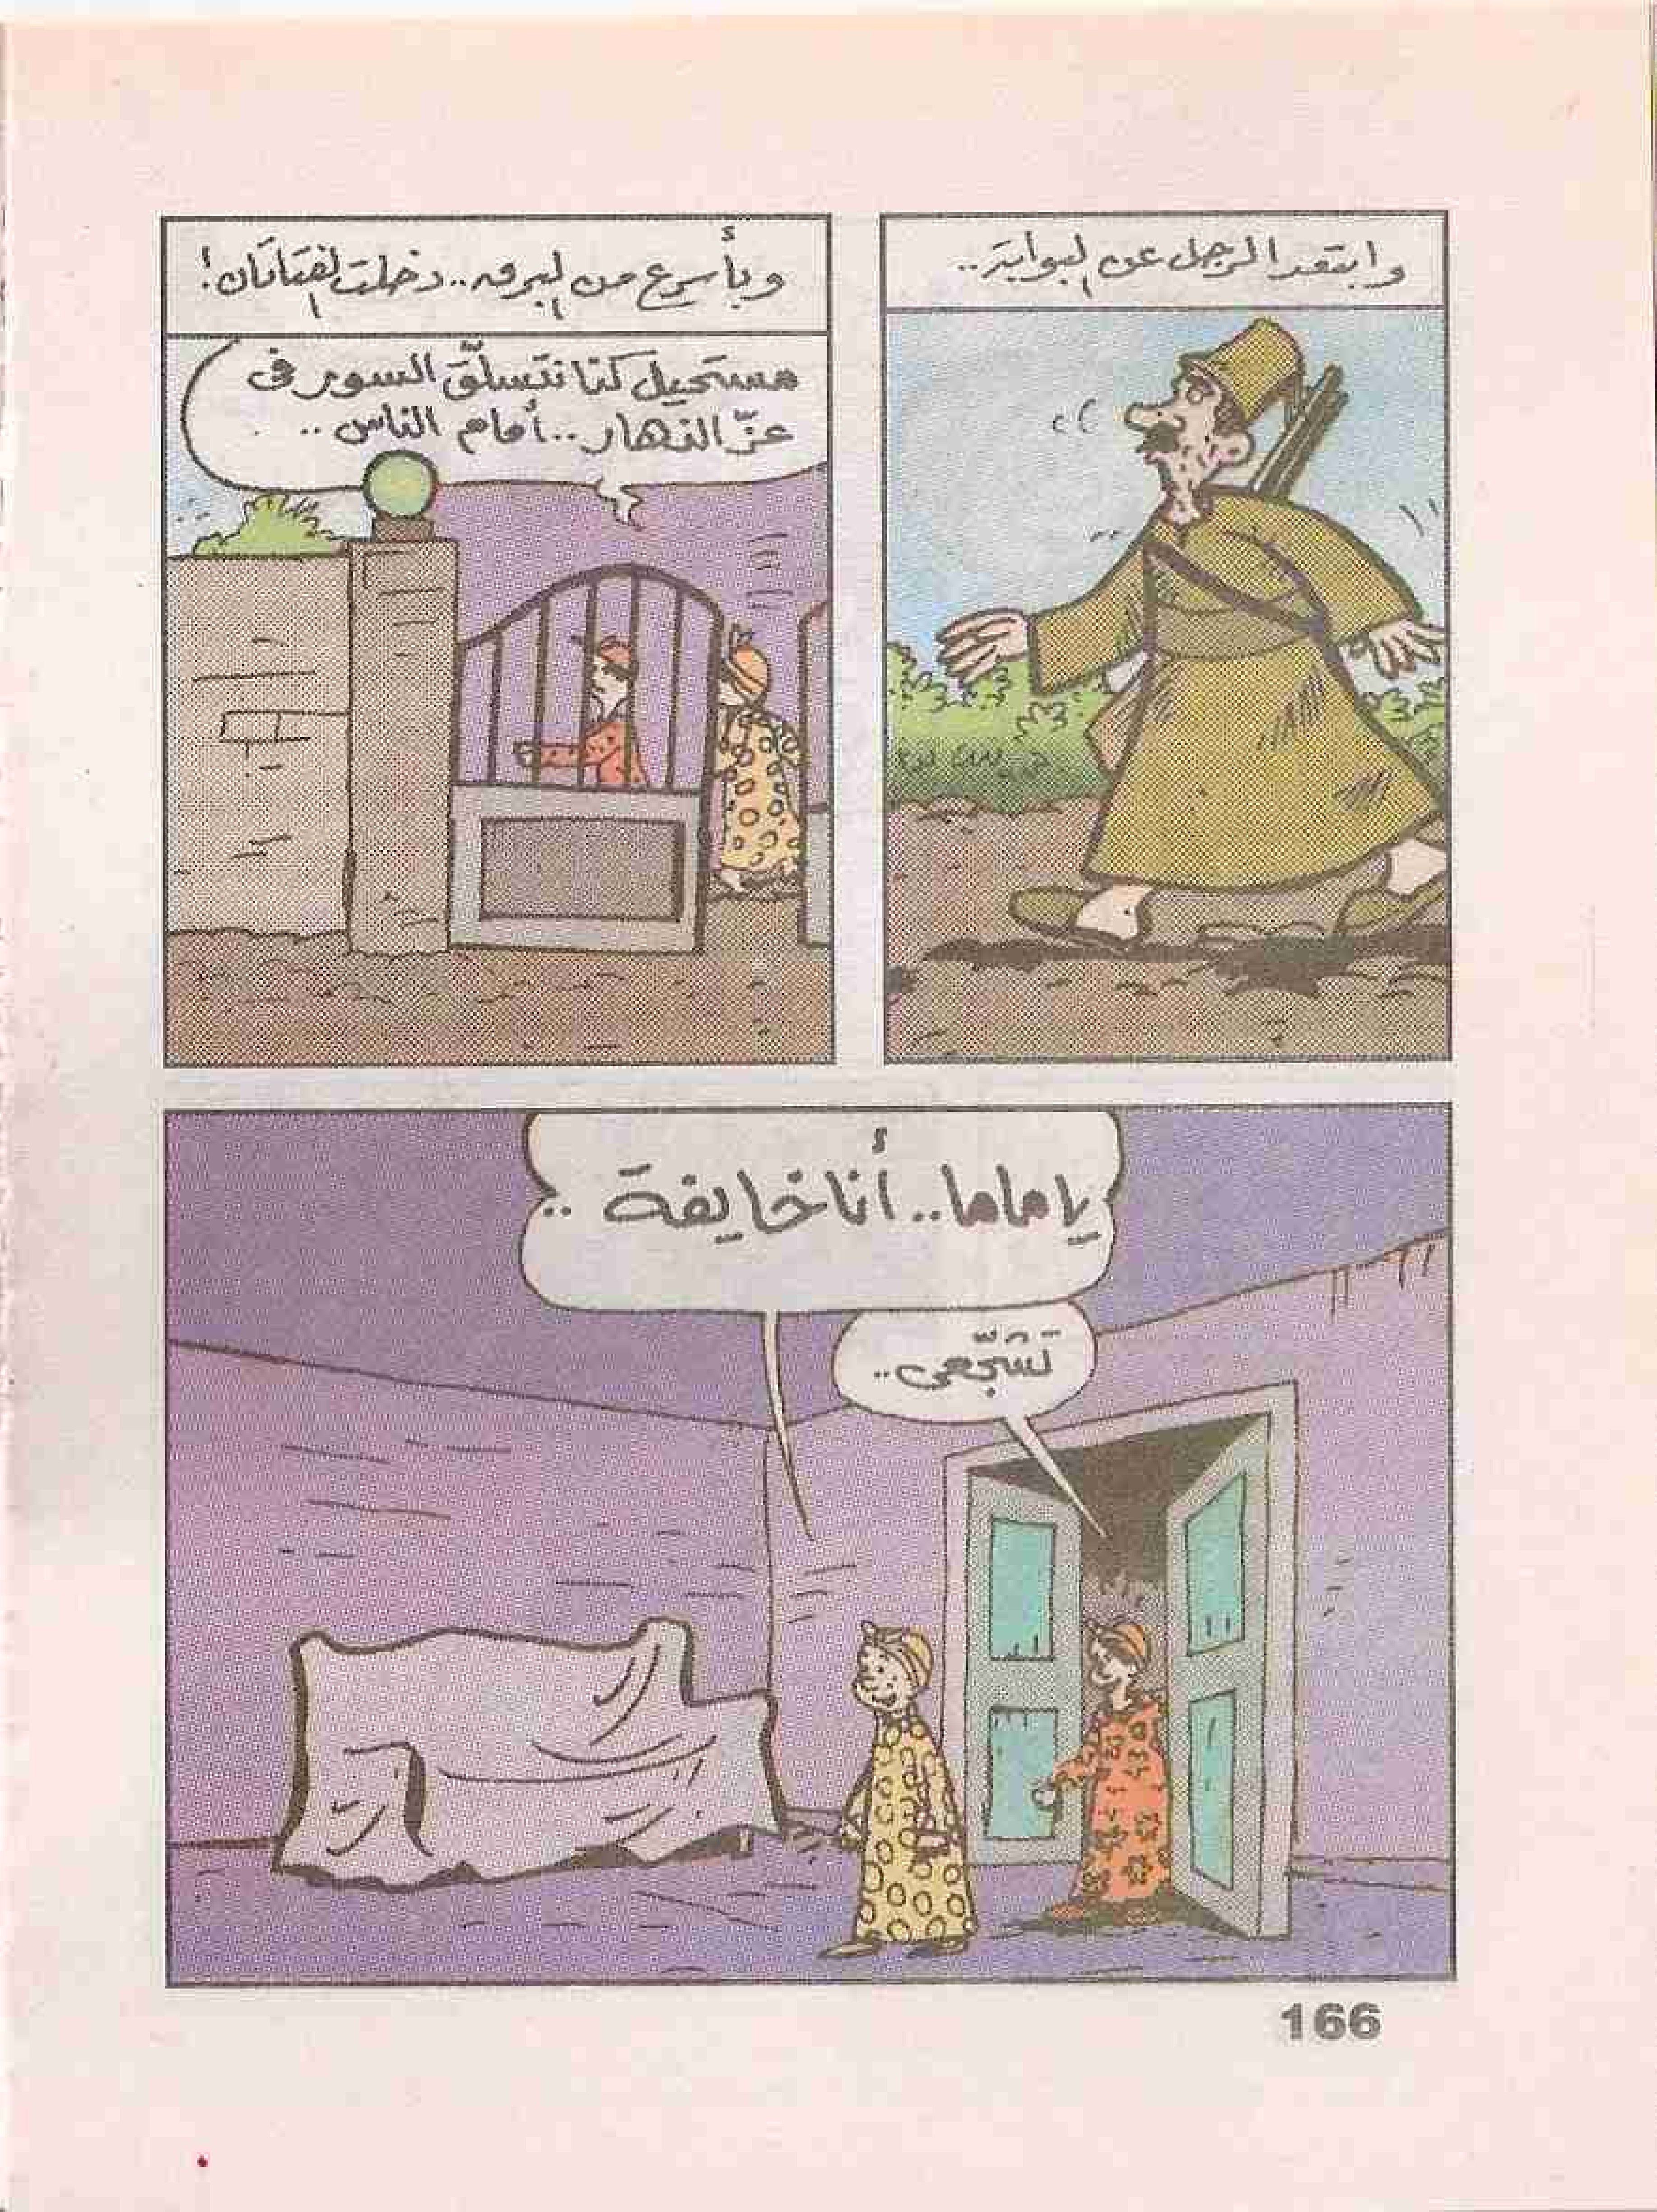 وابتعد الرجل عن البوابة..
وبأسرع من البرق.. دخلت الفتاتان!
مستحيل كنا نتسلّق السور فى
عزّ النهار.. أمام الناس..
يا ماما.. أنا خايفة..
تشجّعى..
166